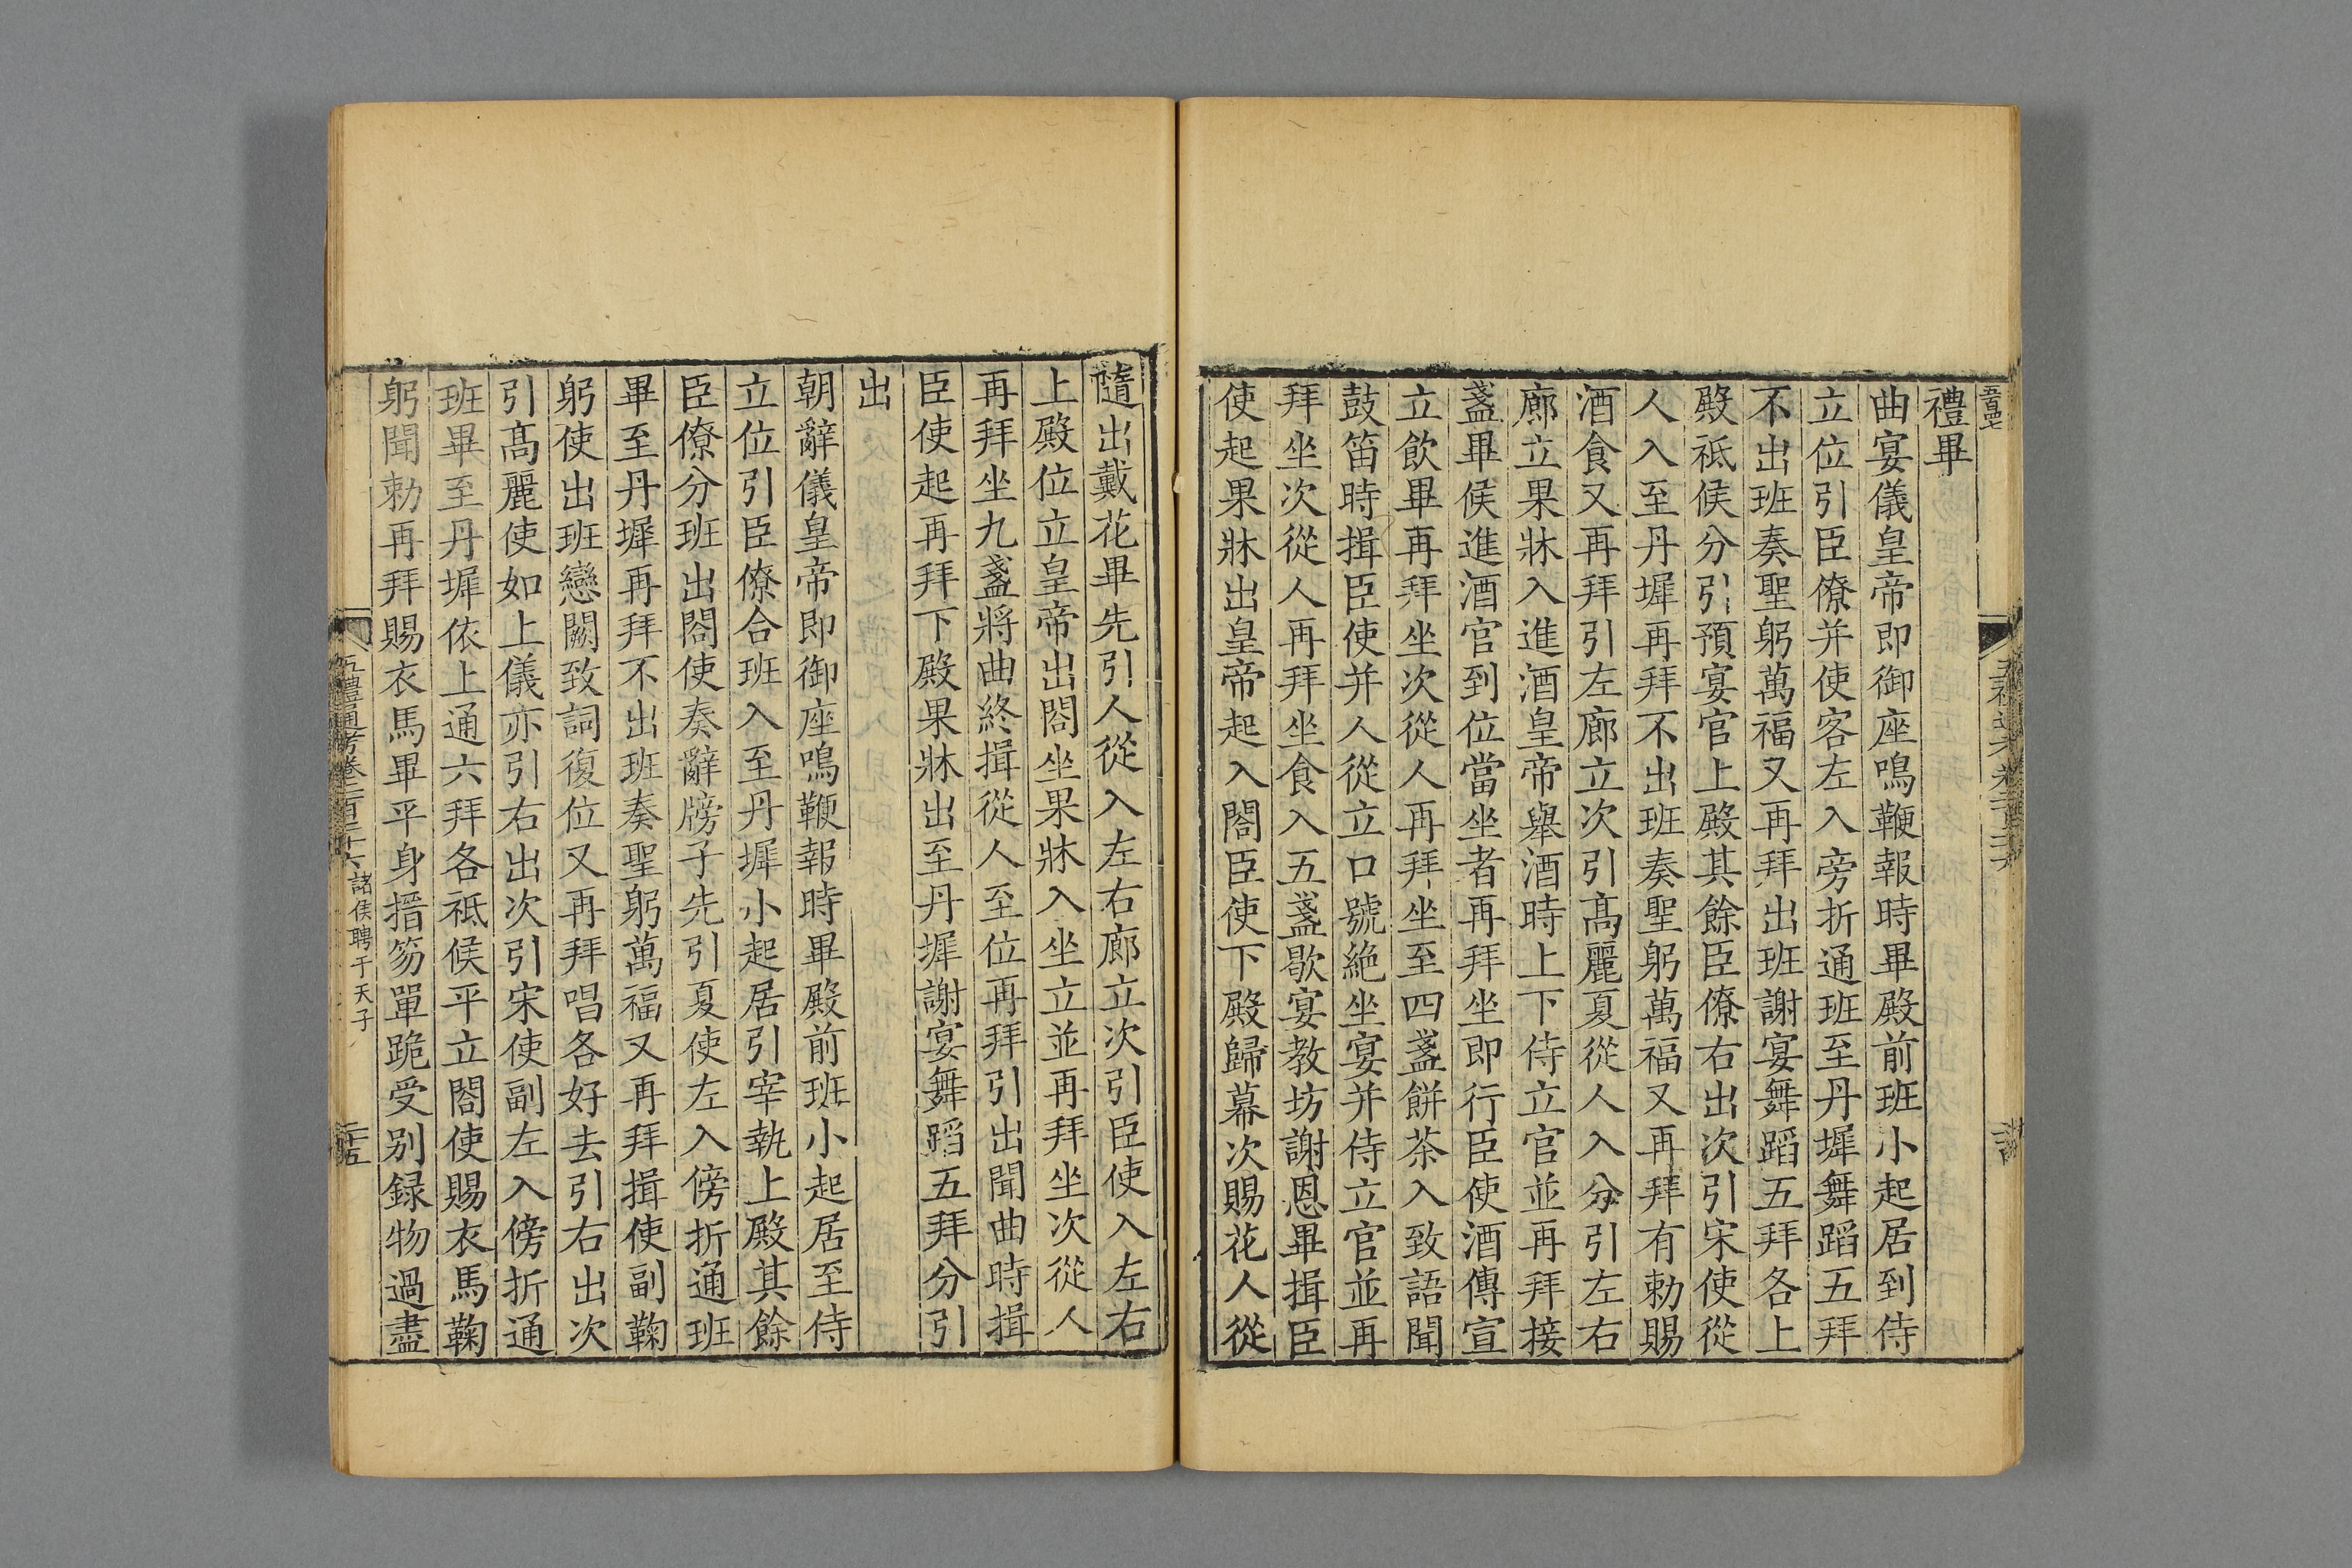 禮畢
曲宴儀皇帝即御座鳴鞭報時畢殿前班小起居到侍
立位引臣僚并使客左入旁折通班至丹墀舞蹈五拜
不出班奏聖躬萬福又再拜出班謝宴舞蹈五拜各上
殿祇候分引預宴官上殿其餘臣僚右出次引宋使從
人入至丹墀再拜不出班奏聖躬萬福又再拜有勅賜
酒食又再拜引左廊立次引高麗夏從人入分引左右
廊立果牀入進酒皇帝舉酒時上下侍立官並再拜接
盞畢候進酒官到位當坐者再拜坐即行臣使酒傳宣
立飲畢再拜坐次從人再拜坐至四盞餅茶入致語聞
鼓笛時揖臣使并人從立口號絶坐宴并侍立官並再
拜坐次從人再拜坐食入五盞歇宴教坊謝恩畢揖臣
使起果牀出皇帝起入閤臣使下殿歸幕次賜花人從
隨出戴花畢先引人從入左右廊立次引臣使入左右
上殿位立皇帝出閤坐果牀入坐立並再拜坐次從人
再拜坐九盞將曲終揖從人至位再拜引出聞曲時揖
臣使起再拜下殿果牀出至丹墀謝宴舞蹈五拜分引
出
朝辭儀皇帝即御座鳴鞭報時畢殿前班小起居至侍
立位引臣僚合班入至丹墀小起居引宰執上殿其餘
臣僚分班出閤使奏辭牓子先引夏使左入傍折通班
畢至丹墀再拜不出班奏聖躬萬福又再拜揖使副鞠
躬使出班戀闕致詞復位又再拜唱各好去引右出次
引高麗使如上儀亦引右出次引宋使副左入傍折通
班畢至丹墀依上通六拜各祇候平立閤使賜衣馬鞠
躬聞勅再拜賜衣馬畢平身搢笏單跪受别録物過盡
五禮通考卷二百二十六 諸侯聘于天子 二十五